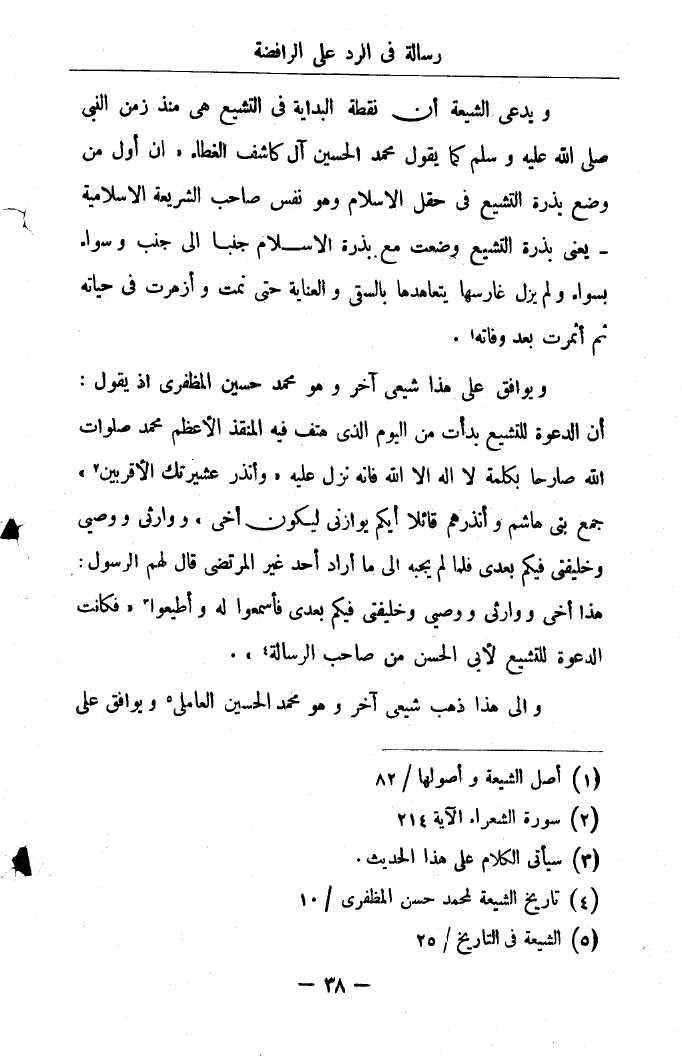 رسالة فى الرد على الرافضة
و يدعى الشيعة أن نقطة البداية فى التشيع هى منذ زمن النبى
صلى الله عليه و سلم كما يقول محمد الحسين آل كاشف الغطاء « ان أول من
وضع بذرة التشيع فى حقل الاسلام وهو نفس صاحب الشريعة الاسلامية
- يعنى بذرة التشيع وضعت مع بذرة الاسلام جنبا الى جنب و سواء
بسواء و لم يزل غارسها يتعاهدها بالسقى و العناية حتى نمت و أزهرت فى حياته
ثم أثمرت بعد وفاته١ .
و يوافق على هذا شيعى آخر و هو محمد حسين المظفرى اذ يقول :
أن الدعوة للتشيع بدأت من اليوم الذى هتف فيه المنقذ الأعظم محمد صلوات
الله صارحا بكلمة لا اله الا الله فانه نزل عليه « وأنذر عشيرتك الأقربين٢ »
جمع بنى هاشم و أنذرهم قائلا أيكم يوازنى ليكون أخى ، و وارثى و وصيى
وخليفتى فيكم بعدى فلما لم يجبه الى ما أراد أحد غير المرتضى قال لهم الرسول :
هذا أخى و وارثى و وصيى وخليفتى فيكم بعدى فأسمعوا له و أطيعوا٣ « فكانت
الدعوة للتشيع لأبى الحسن من صاحب الرسالة٤ » .
و الى هذا ذهب شيعى آخر و هو محمد الحسين العاملى٥ و يوافق على
(١) أصل الشيعة و أصولها / ٨٢
(٢) سورة الشعراء الآية ٢١٤
(٣) سيأتى الكلام على هذا الحديث .
(٤) تاريخ الشيعة لمحمد حسن المظفرى / ١٠
(٥) الشيعة فى التاريخ / ٢٥
— ٣٨ —